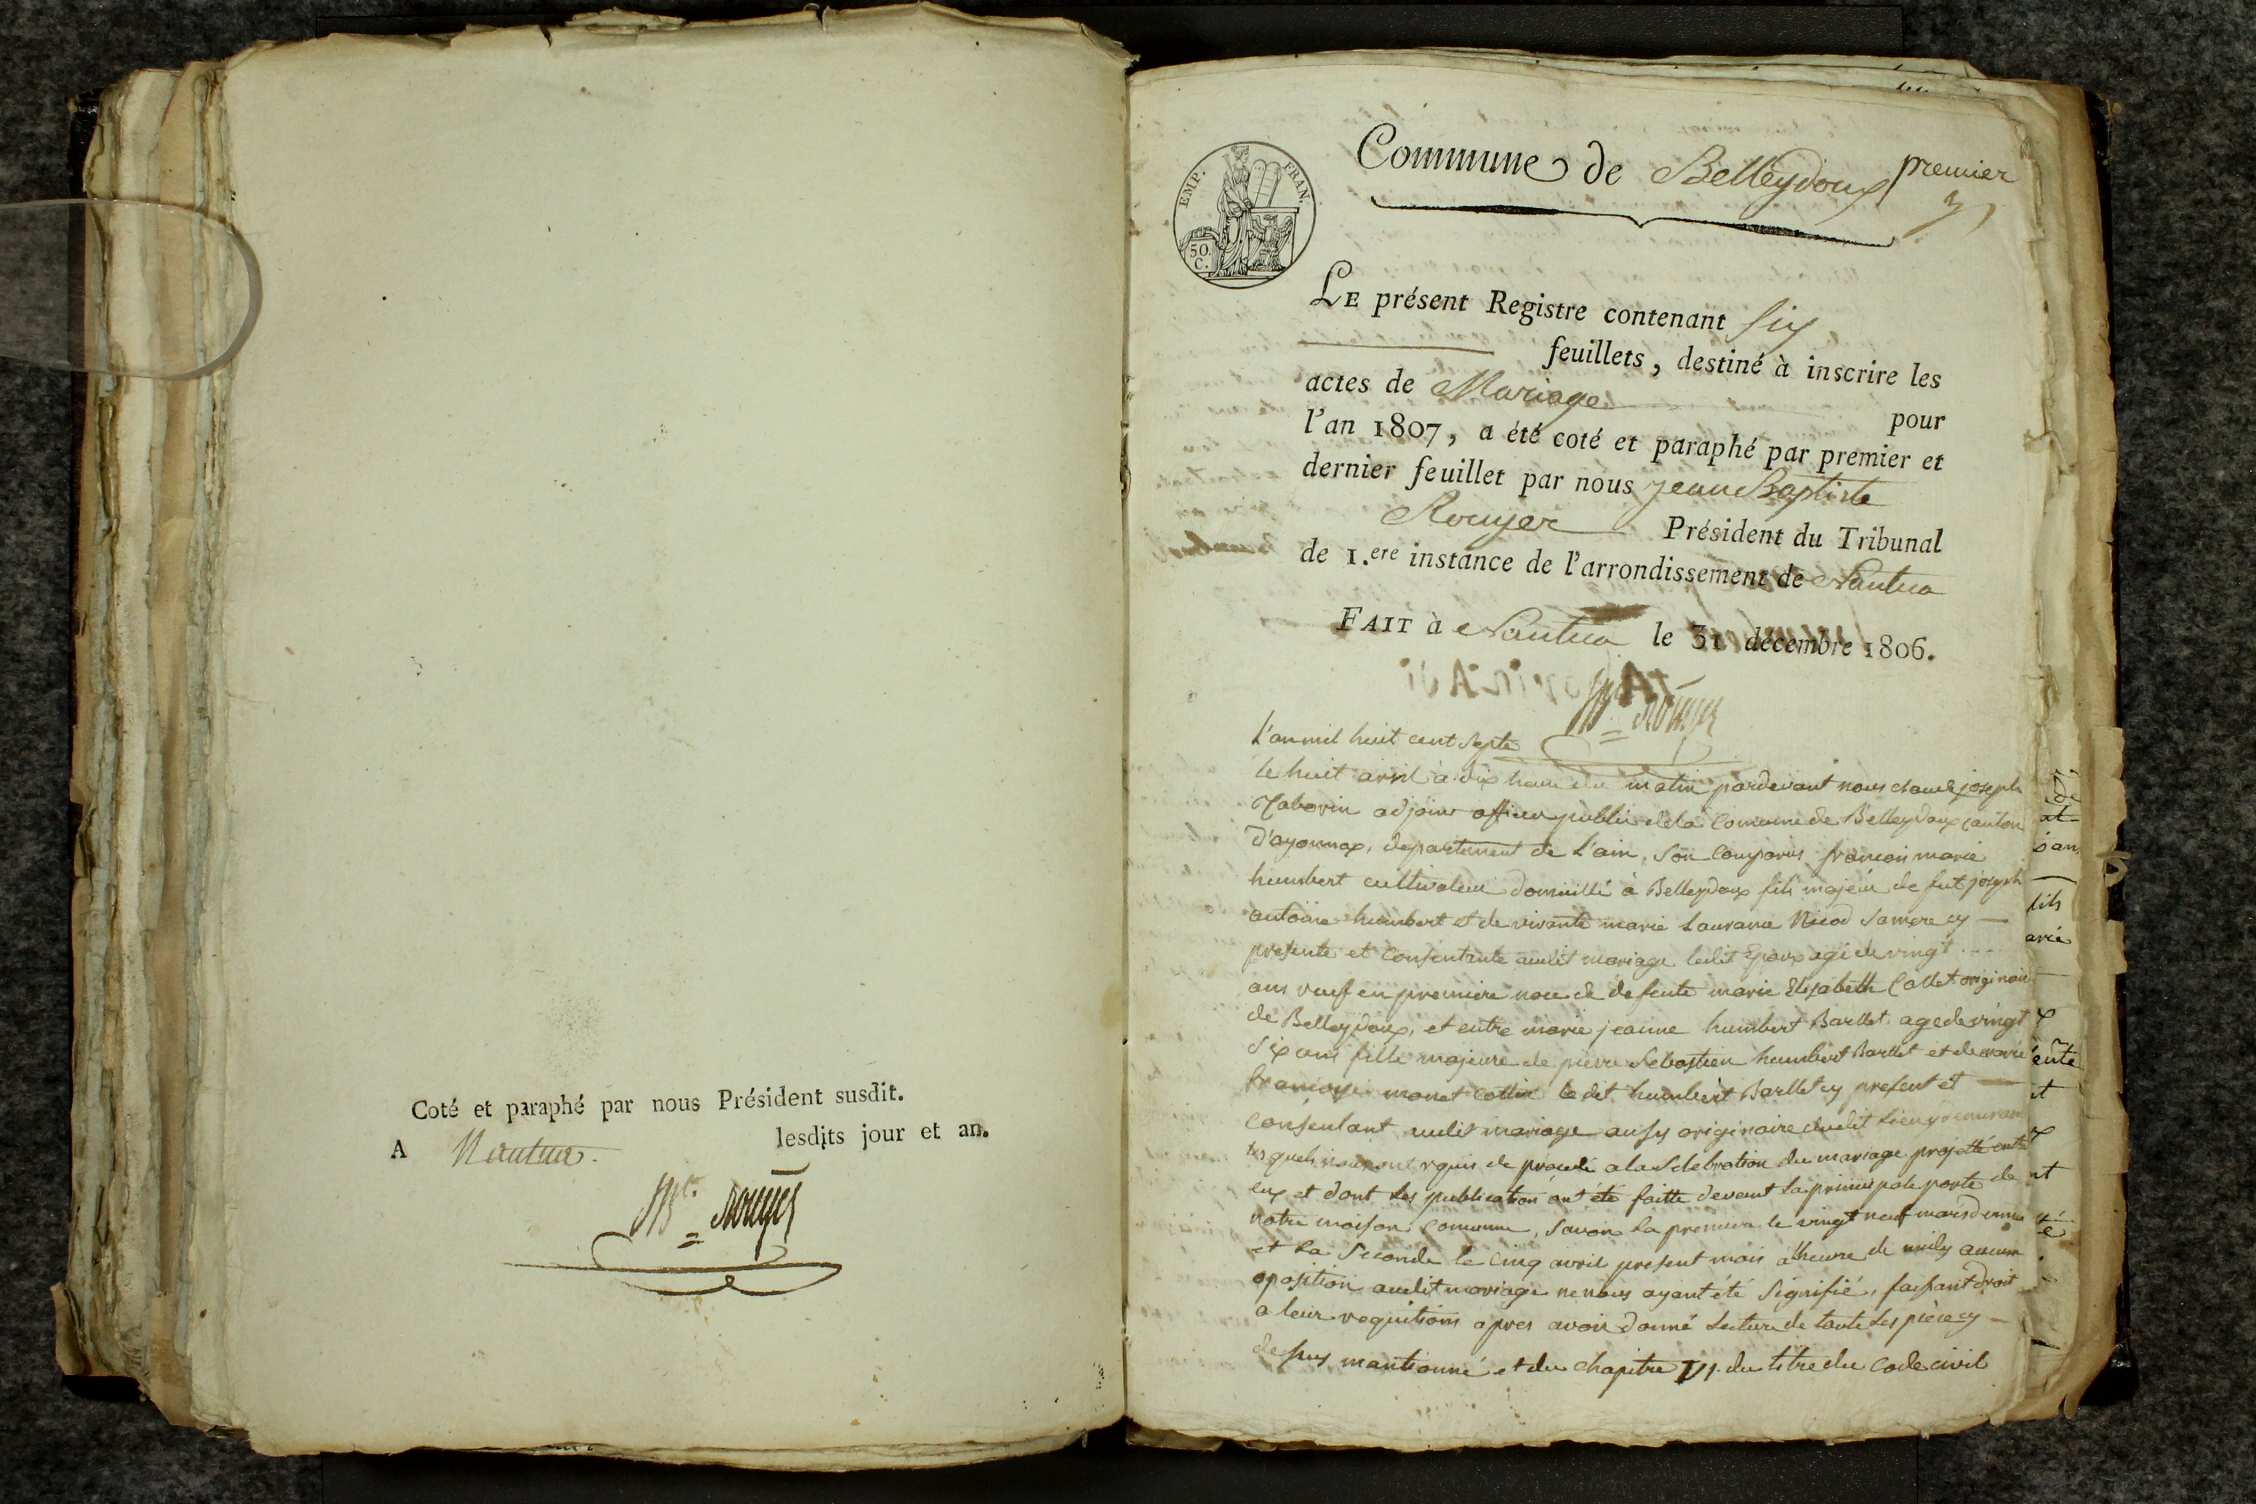 Coté et paraphé par nous Président susdit.
A Nantua. lesdits jour et an.
Rouyer
EMP. FRAN.
50.
C.
Commune de Belleydoux
premier
LE présent Registre contenant six
feuillets, destiné à inscrire les
actes de Mariage pour
l'an 1807, a été coté et paraphé par premier et
dernier feuillet par nous jean Baptiste
Rouyer Président du Tribunal
de 1.ere instance de l'arrondissement de Nantua
FAIT à Nantua le 31 décembre 1806.
Rouyer
L'an mil huit cent septe
le huit avril à dix heure du matin pardevant nous claude joseph
adjoint officier public de la Comune de Belleydoux canton
d'ayonnax, departement de L'ain, son comparus francois marie
humbert cultivateur domicillié à Belleydoux fils majeur de fut joseph
antoine humbert et de vivante marie Laurance Nicod sa mere cy
presente et Consentante audit mariage ledit Epoux agé de vingt
ans veuf en premiere noce de defeute marie Elisabeth Collet originaire
de Belleydoux, et entre marie jeanne humbert Barllet age de vingt
six ans fille majeure de pierre Sebastien humbert Barllet et de marie
francoise monet Collin le dit humbert Barllet cy present et
consentant audit mariage aussy originaire dudit Lieu
les quels nous ont requis de procedé a la Selebration du mariage projetté entre
eux et dont les publication ont été faitte devant la principale porte de
notre maison Comune, savoir la premiere le vingt neuf mars dernier
et la Seconde le Cinq avril present mois a lheure de midy aucune
oposition audit mariage ne nous ayant été Signifié, faisant droit
a leur requitions apres avoir donné Lecture de toute Les pièce cy
desus mantionné et du chapitre VI. du titre du Code civil